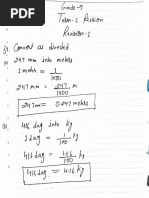 Grade-5
Term-2 Revision
Revision-2
Convert as directed
247 mm into metres
247 mm = 247/1000 m
247mm = 0.247 metres
416 dag into Kg
1 dag = 1/100
416 dag = 416/100 Kg
416 dag = 4.16 Kg